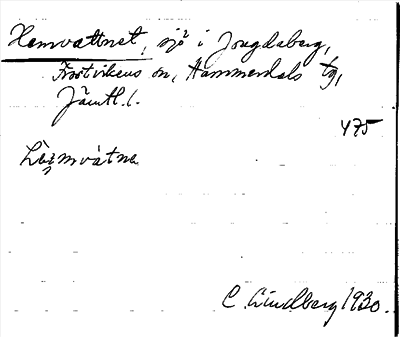 Hemvattnet, sjö i Jougdaberg,
Frostvikens sn, Hammerdals tg,
Jämtl. l.
475
C. Lindberg 1930.